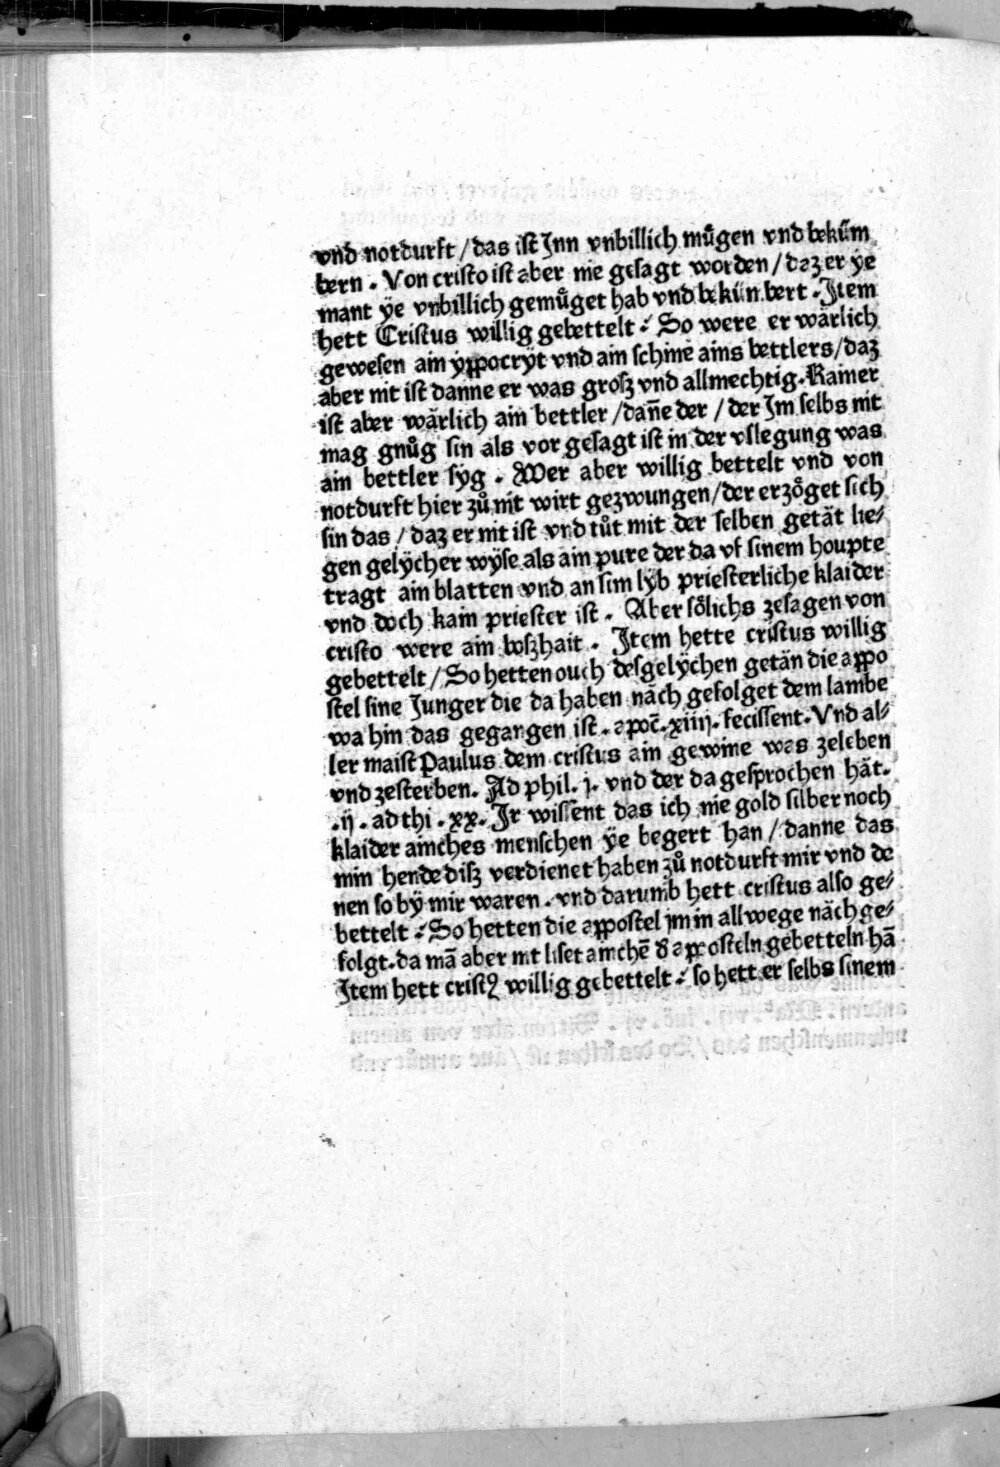 vnd notdurft / das ist Jnn vnbillich mu̔gen vnd beku̔m
bern . Von cristo ist aber nie gesagt worden / daz er ÿe
mant ÿe vnbillich gemu̔get hab vnd bekün bert . Jtem
hett Cristus willig gebettelt : So were er wärlich
gewesen ain ẏppocrÿt vnd ain schine ains bettlers / daz
aber nit ist danne er was grosz vnd allmechtig . Kainer
ist aber wärlich ain bettler / dañe der / der Jm selbs nit
mag gnůg sin als vor gesagt ist in der vslegung was
ain bettler sÿg . Wer aber willig bettelt vnd von
notdurft hier zů nit wirt gezwungen / der erzo̔get sich
sin das / daz er nit ist vnd tůt mit der selben getät lie⸗
gen gelÿcher wÿse als ain pure der da vf sinem houpte
tragt ain blatten vnd an sim lÿb priesterliche klaider
vnd doch kain priester ist . Aber so̔lichs zesagen von
cristo were ain boszhait . Jtem hette cristus willig
gebettelt / So hetten ouch desgelÿchen getän die appo
stel sine Junger die da haben näch gefolget dem lambe
wa hin das gegangen ist . apoc̄ . xiiij . fecissent . Vnd al⸗
ler maist Paulus dem cristus ain gewine was zeleben
vnd zesterben . Ad phil . j . vnd der da gesprochen hät .
. ij . ad thi . xx . Jr wissent das ich nie gold silber noch
klaider ainches menschen ÿe begert han / danne das
min hende disz verdienet haben zů notdurft mir vnd de
nen so bÿ mir waren . vnd darumb hett cristus also ge⸗
bettelt : So hetten die appostel jm in allwege näch ge⸗
folgt . da mā aber nit liset ainchē d̕ apposteln gebetteln hā
Jtem hett cristꝰ willig gebettelt : so hett er selbs sinem